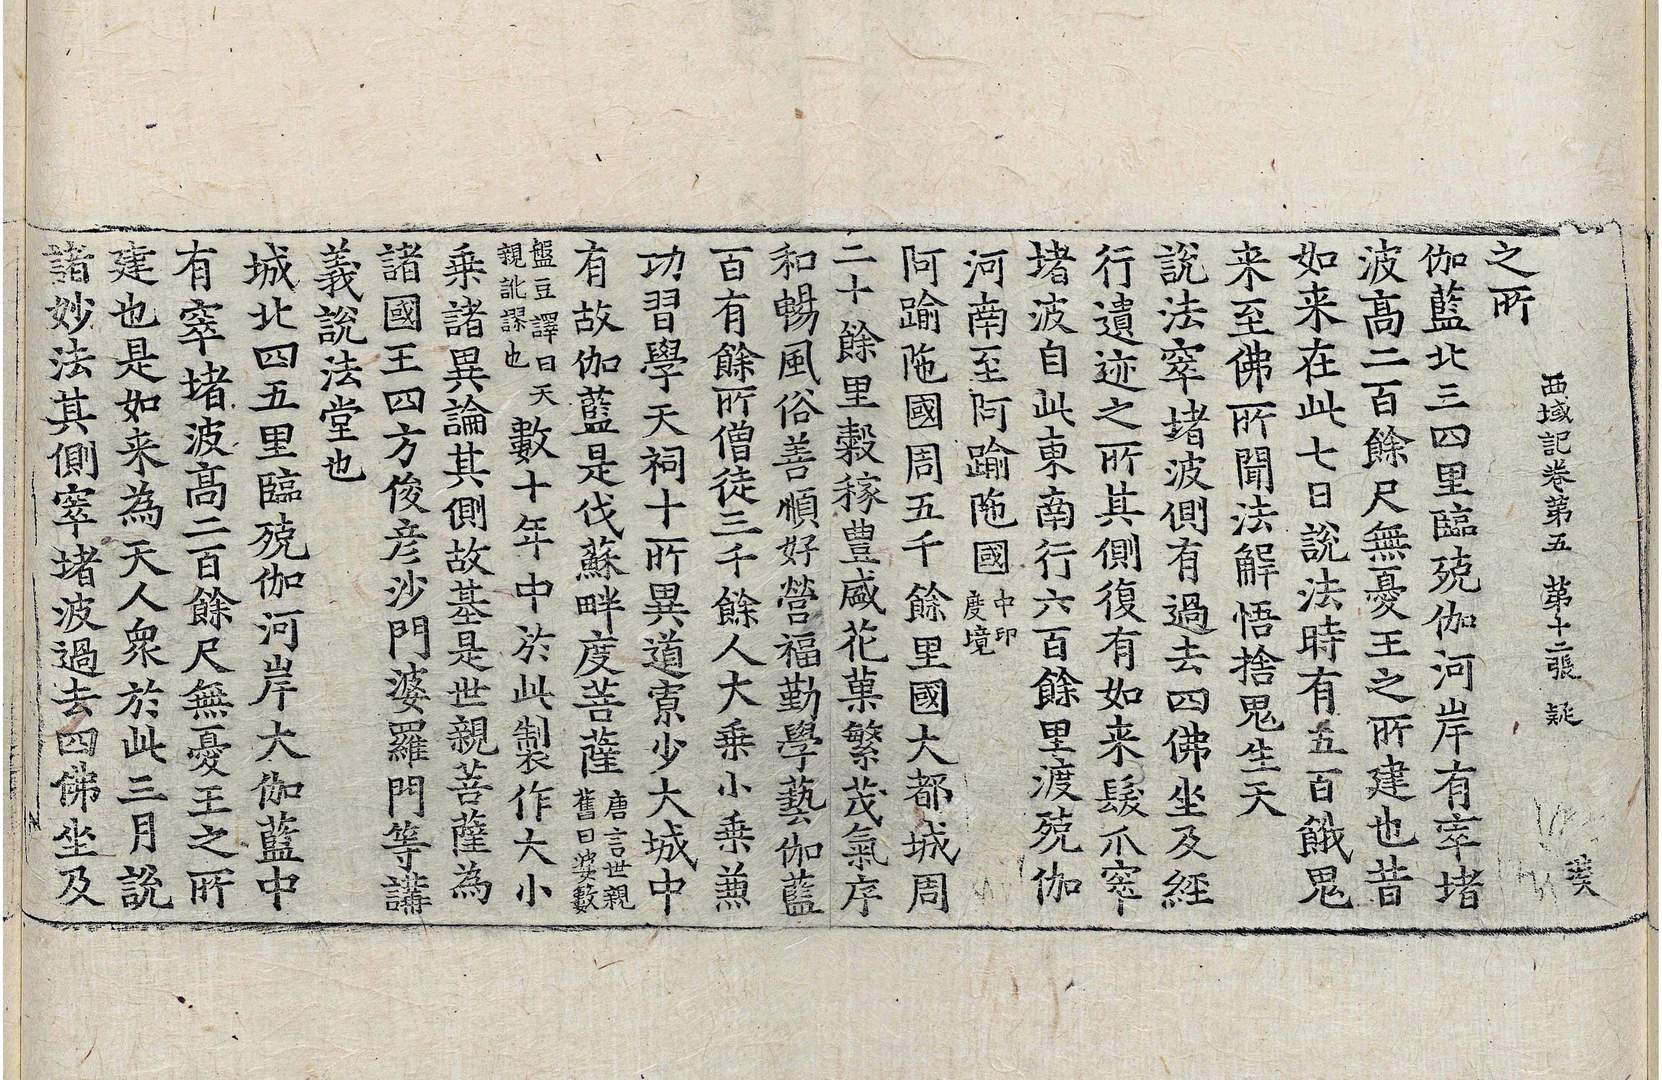 西域記卷第五 第十二張 疑
之所
伽藍北三四里臨殑伽河岸有窣堵
波高二百餘尺無憂王之所建也昔
如来在此七日說法時有五百餓鬼
来至佛所聞法解悟捨鬼生天
說法窣堵波側有過去四佛坐及經
行遺迹之所其側復有如来髮爪窣
堵波自此東南行六百餘里渡殑伽
河南至阿踰陁國中印
度境
阿踰陁國周五千餘里國大都城周
二十餘里穀稼豊盛花菓繁茂氣序
和暢風俗善順好營福勤學藝伽藍
百有餘所僧徒三千餘人大乗小乗兼
功習學天祠十所異道寡少大城中
有故伽藍是伐蘇畔度菩薩唐言世親
舊曰婆藪
盤豆譯曰天
親訛謬也數十年中於此製作大小
乗諸異論其側故基是世親菩薩為
諸國王四方俊彦沙門婆羅門等講
義說法堂也
城北四五里臨殑伽河岸大伽藍中
有窣堵波高二百餘尺無憂王之所
建也是如来為天人衆於此三月說
諸妙法其側窣堵波過去四佛坐及